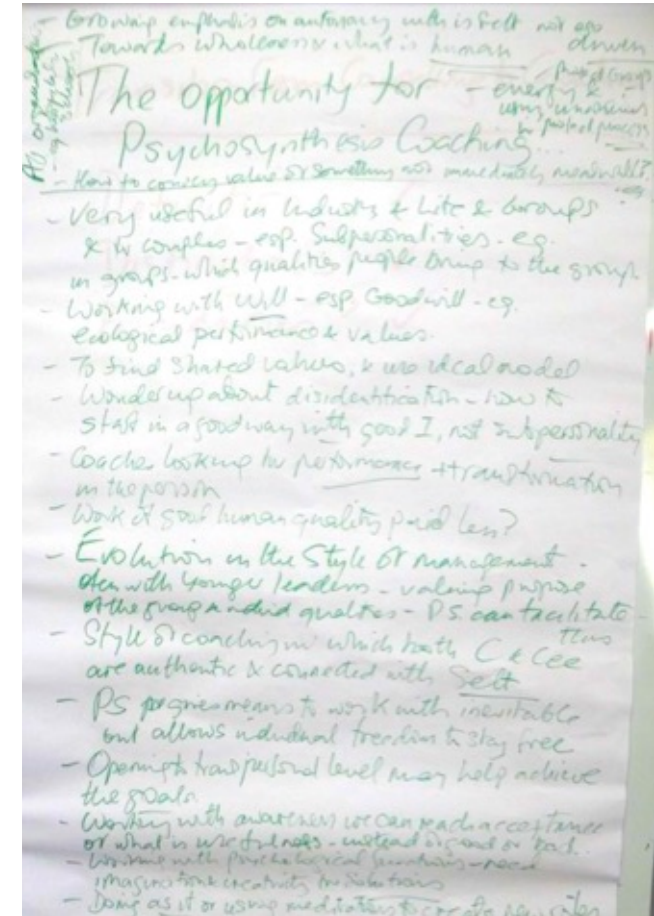 - Growing emphasis on autonomy which is felt not ego driven
Towards wholeness & what is human
The opportunity for
- energy &
using
Psychosynthesis Coaching...
- How to convey value of something not immediately measurable?
- Very useful in Industry & Life & Groups
& in couples - esp. Subpersonalities - eg.
in groups - which qualities people bring to the group
- Working with Will - esp Goodwill - eg.
ecological performance & values.
- To find Shared values, & use ideal model
- Wondering about disidentification - how to
start in a good way with good I, not Subpersonality
- Coaches looking for performance + transformation
in the person
- Work of good human quality paid less?
- Evolution in the Style of management -
often with younger leaders - valuing purpose
of the group & individ qualities - P.S. can facilitate
this
- Style of coaching in which both C & Cee
are authentic & connected with Self
- PS means to work with inevitable
but allows individual freedom to stay free
- Opening to transpersonal level may help achieve
the goals.
- Working with awareness we can reach acceptance
of what is - usefulness - instead of good or bad.
- Working with psychological functions - need
imagination & creativity for solutions
- Doing as if or using meditation to